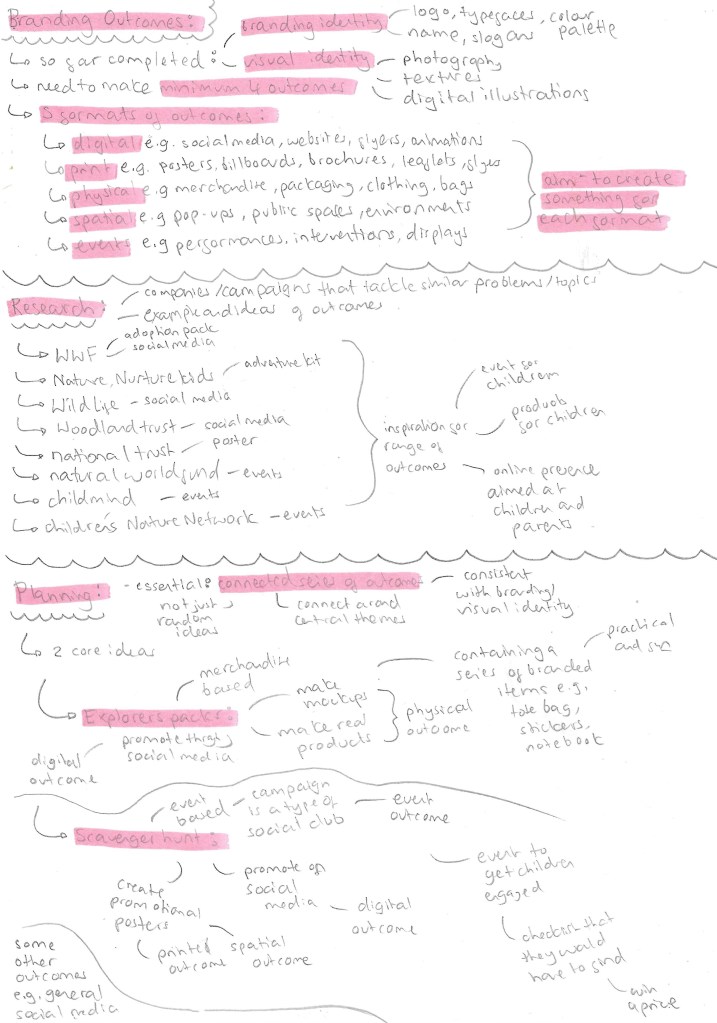 Branding Outcomes:
branding identity
logo, typefaces, colour palette
name, slogans
so far completed:
visual identity
photography
textures
digital illustrations
need to make minimum 4 outcomes
5 formats of outcomes:
digital e.g. social media, websites, flyers, animations
print e.g. posters, billboards, brochures, leaflets, flyers
physical e.g merchandise, packaging, clothing, bags
spatial e.g pop-ups, public spaces, environments
events e.g performances, interventions, displays
aim - to create
something for
each format
Research:
companies/campaigns that tackle similar problems/topics
example and ideas of outcomes
WWF
adoption pack
social media
Nature, Nurture kids
adventure kit
Wild life - social media
Woodland trust - social media
national trust - poster
natural world fund - events
childmind - events
children's Nature Network - events
inspiration for
range of
outcomes
event for
children
products
for children
online presence
aimed at
children and
parents
Planning:
- essential: connected series of outcomes
not just
random
ideas
connect around
central themes
consistent
with brading/
visual identity
2 core ideas
Explorers packs:
merchandise
based
make
mockups
make real
products
physical
outcome
containing a
series of branded
items e.g,
tote bag,
stickers,
notebook
practical
and fun
promote through
social media
digital
outcome
Scavenger hunt:
event
based
campaign
is a type of
social club
event
outcome
event to
get children
engaged
checklist that
they would
have to find
win
a prize
promote on
social
media
digital
outcome
create
promotional
posters
printed
outcome
spatial
outcome
some
other
outcomes
e.g. general
social media